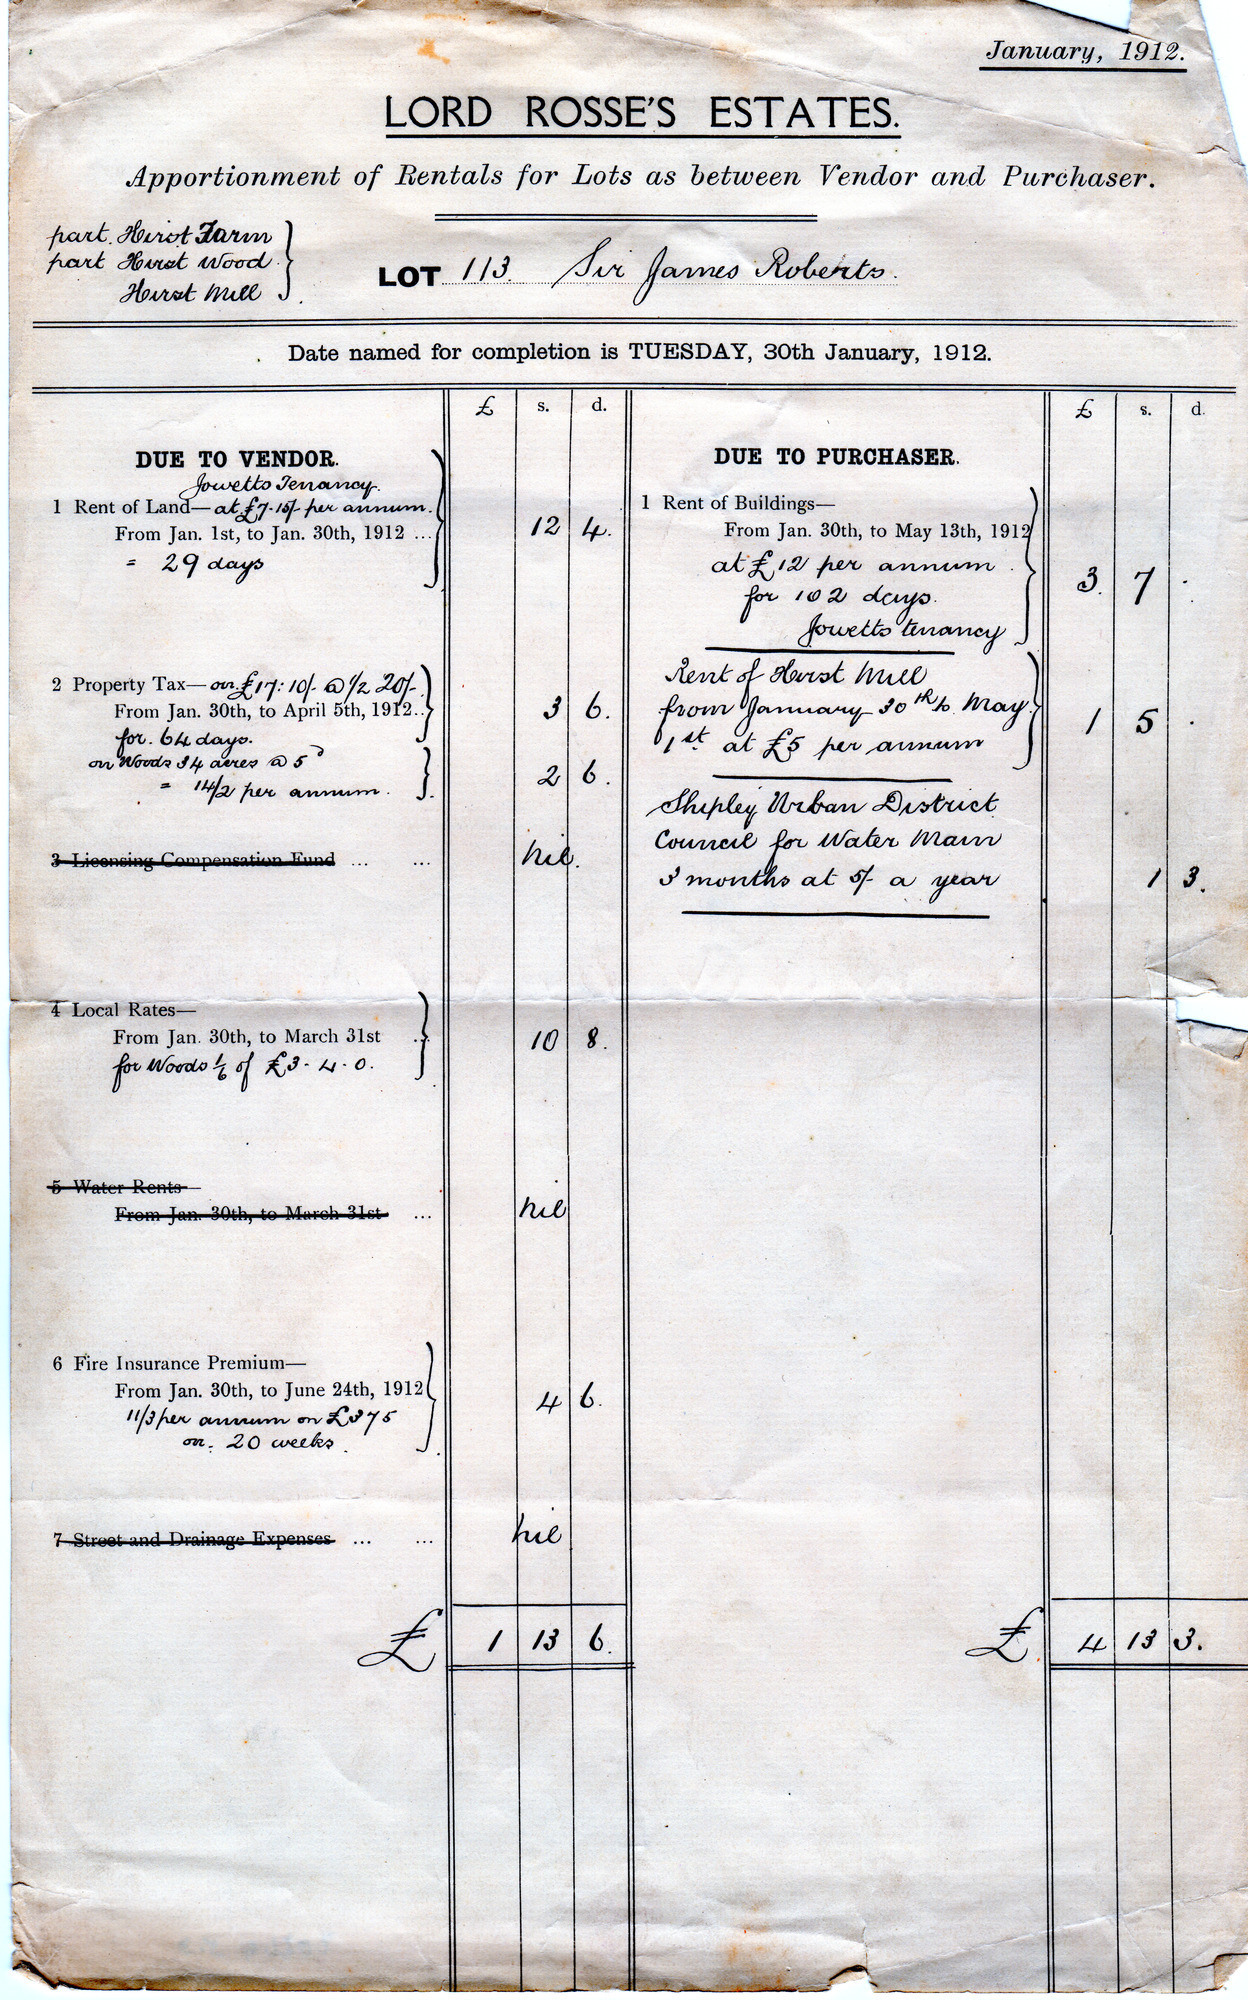 January, 1912.
LORD ROSSE'S ESTATES.
Apportionment of Rentals for Lots as between Vendor and Purchaser.
part. Hirst Farm
part Hirst Wood
Hirst Mill
LOT 113. Sir James Roberts.
Date named for completion is TUESDAY, 30th January, 1912.
£ s. d.
DUE TO VENDOR.
Jowetts Tenancy.
1 Rent of Land— at £7.15/- per annum.
From Jan. 1st, to Jan. 30th, 1912 ... 12 4.
= 29 days
2 Property Tax— on £17: 10/- @ 1/2 20/-
From Jan. 30th, to April 5th, 1912.. 3 6.
for. 64 days.
on Woods 34 acres @ 5d
= 14/2 per annum. 2 6.
3 Licensing Compensation Fund ... ... nil.
4 Local Rates—
From Jan. 30th, to March 31st 10 8.
for Woods 1/6 of £3-4-0.
5 Water Rents—
From Jan. 30th, to March 31st ... nil
6 Fire Insurance Premium—
From Jan. 30th, to June 24th, 1912 4 6.
11/3 per annum on £375
on. 20 weeks.
7 Street and Drainage Expenses ... ... nil
£ 1 13 6.
£ s. d.
DUE TO PURCHASER.
1 Rent of Buildings—
From Jan. 30th, to May 13th, 1912
at £12 per annum. 3. 7 .
for 102 days.
Jowetts tenancy
Rent of Hirst Mill
from January 30th to May 1 5 .
1st at £5 per annum
Shipley Urban District
Council for Water Main
3 months at 5/- a year 1 3.
£ 4 13 3.